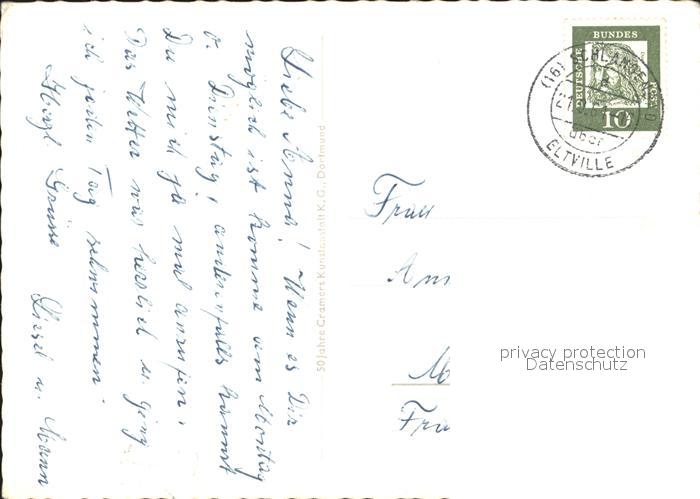 Liebe Anna! Wenn es Dir
möglich ist komme am Montag
o. Dienstag, andernfalls kannst
Du mich ja mal anrufen.
Das Wetter war herrlich u. ging
ich jeden Tag schwimmen.
Herzl. Grüsse
Liesel u. Mann
50 Jahre Cramers Kunstanstalt K.G., Dortmund
DEUTSCHE BUNDES POST
10
(16) SCHLANGENBAD
über
ELTVILLE
Frau
privacy protection
Datenschutz